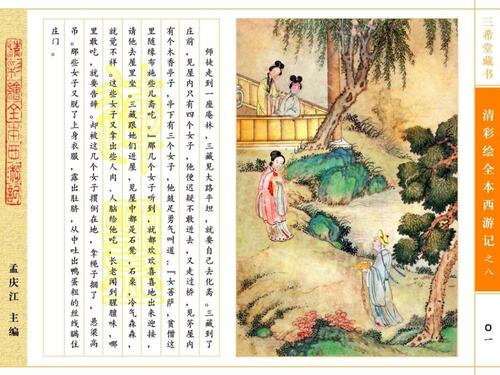 三希堂藏书
清彩绘全本西游记 之八
〇一
师徒走到一座庵林，三藏见大路平坦，就要自己去化斋。三藏到了
庄前，见屋内只有四个女子，他便迟疑不敢进去，又走过桥，见茅屋内
有个木香亭子，亭下有三个女子，他鼓足勇气叫道：「女菩萨，贫僧这
里随缘布施些儿斋吃。」那几个女子听到，就都欢欢喜喜地出来迎接，
请他去屋里坐。三藏跟她们进屋，见屋中都是石凳，石桌，冷气森森，
就觉不祥。这些女子又拿出些人肉、人脑给他吃，长老闻到腥膻味，哪
里敢吃，就要告辞。却被这几个女子掼倒在地，拿绳子捆了，悬梁高
吊。那些女子又脱了上身衣服，露出肚脐，从中吐出鸭蛋粗的丝线瞒住
庄门。
清彩繪全本西遊記
孟庆江 主编